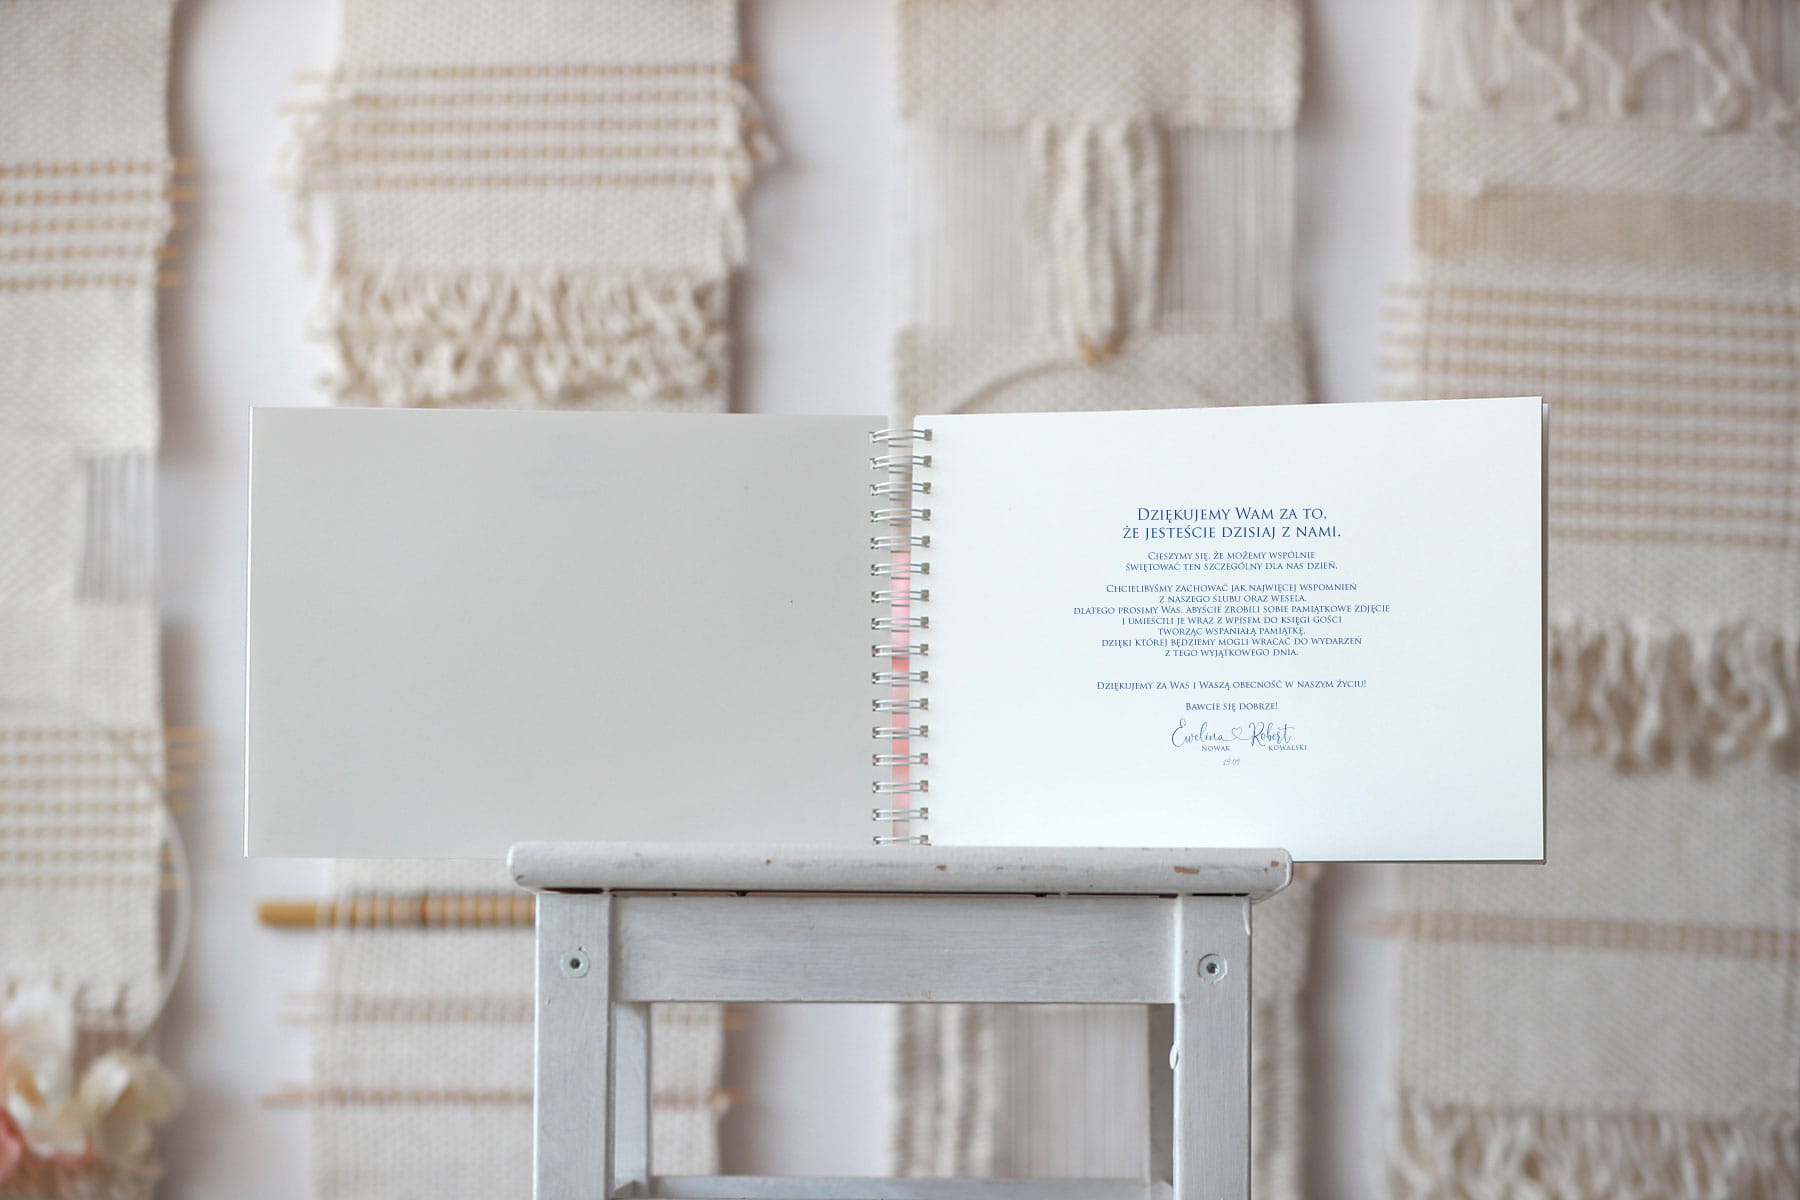 Dziękujemy Wam za to,
że jesteście dzisiaj z nami.
Cieszymy się, że możemy wspólnie
świętować ten szczególny dla nas dzień.
Chcielibyśmy zachować jak najwięcej wspomnień
z naszego ślubu oraz wesela,
dlatego prosimy Was, abyście zrobili sobie pamiątkowe zdjęcie
i umieścili je wraz z wpisem do księgi gości
tworząc wspaniałą pamiątkę,
dzięki której będziemy mogli wracać do wydarzeń
z tego wyjątkowego dnia.
Dziękujemy za Was i Waszą obecność w naszym życiu!
Bawcie się dobrze!
Ewelina Robert
NOWAK KOWALSKI